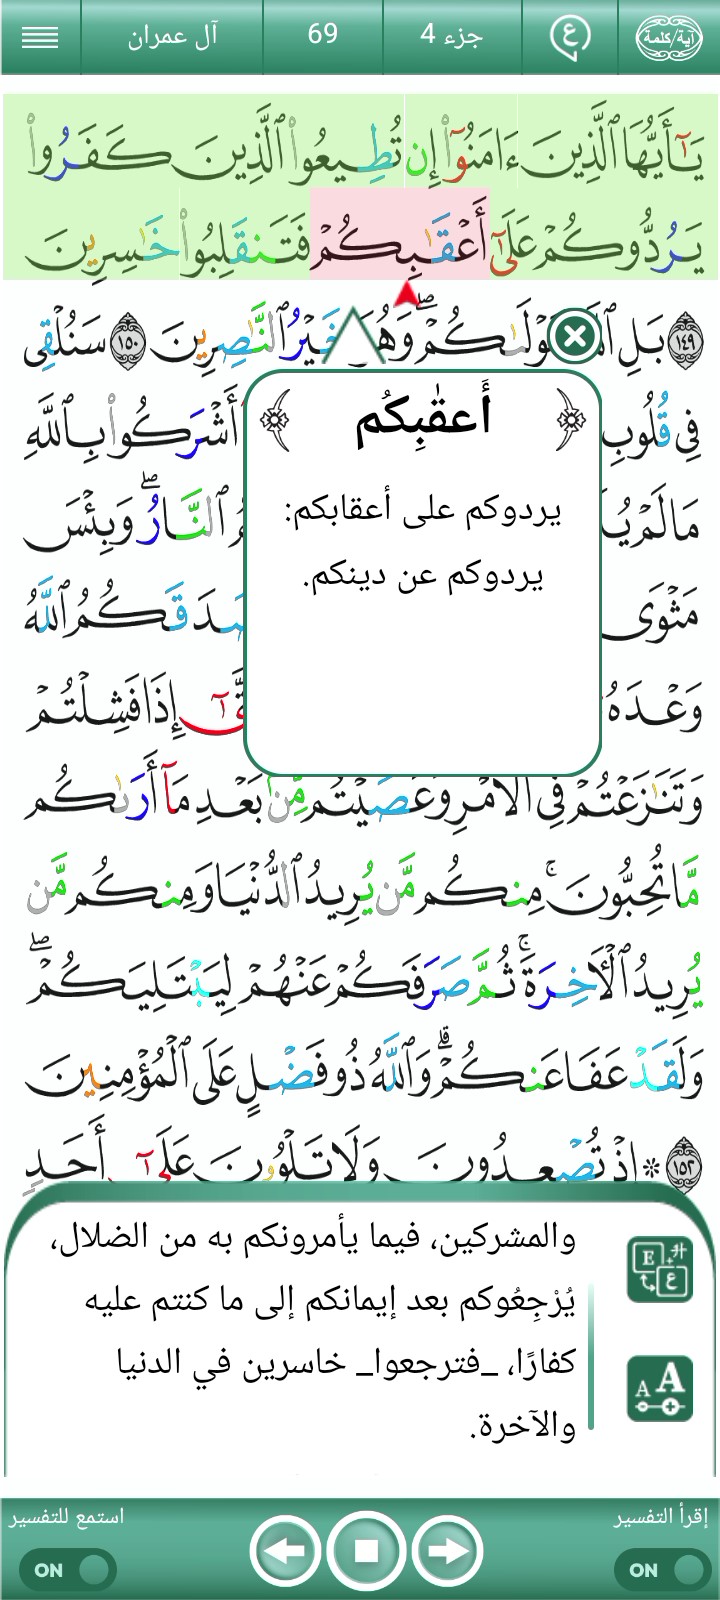 آية/كلمة
ع
جزء 4
69
آل عمران
يَٰٓأَيُّهَا ٱلَّذِينَ ءَامَنُوٓا۟ إِن تُطِيعُوا۟ ٱلَّذِينَ كَفَرُوا۟
يَرُدُّوكُمْ عَلَىٰٓ أَعْقَٰبِكُمْ فَتَنقَلِبُوا۟ خَٰسِرِينَ
١٤٩ بَلِ مَوْلَىٰكُمْ ۖ وَهُوَ خَيْرُ ٱلنَّٰصِرِينَ ١٥٠ سَنُلْقِى
فِى قُلُوبِ أَشْرَكُوا۟ بِٱللَّهِ
مَا لَمْ ٱلنَّارُ ۖ وَبِئْسَ
مَثْوَى صَدَقَكُمُ ٱللَّهُ
وَعْدَهُ إِذَا فَشِلْتُمْ
وَتَنَٰزَعْتُمْ فِى ٱلْأَمْرِ وَعَصَيْتُم مِّنۢ بَعْدِ مَآ أَرَىٰكُم
مَّا تُحِبُّونَ ۚ مِنكُم مَّن يُرِيدُ ٱلدُّنْيَا وَمِنكُم مَّن
يُرِيدُ ٱلْءَاخِرَةَ ۚ ثُمَّ صَرَفَكُمْ عَنْهُمْ لِيَبْتَلِيَكُمْ ۖ
وَلَقَدْ عَفَا عَنكُمْ ۗ وَٱللَّهُ ذُو فَضْلٍ عَلَى ٱلْمُؤْمِنِينَ
١٥٢ ۞ إِذْ تُصْعِدُونَ وَلَا تَلْوُۥنَ عَلَىٰٓ أَحَدٍ
﴿ أَعقَٰبِكُم ﴾
يردوكم على أعقابكم:
يردوكم عن دينكم.
والمشركين، فيما يأمرونكم به من الضلال،
يُرْجِعُوكم بعد إيمانكم إلى ما كنتم عليه
كفارًا، _فترجعوا_ خاسرين في الدنيا
والآخرة.
إقرأ التفسير
استمع للتفسير
ON
ON